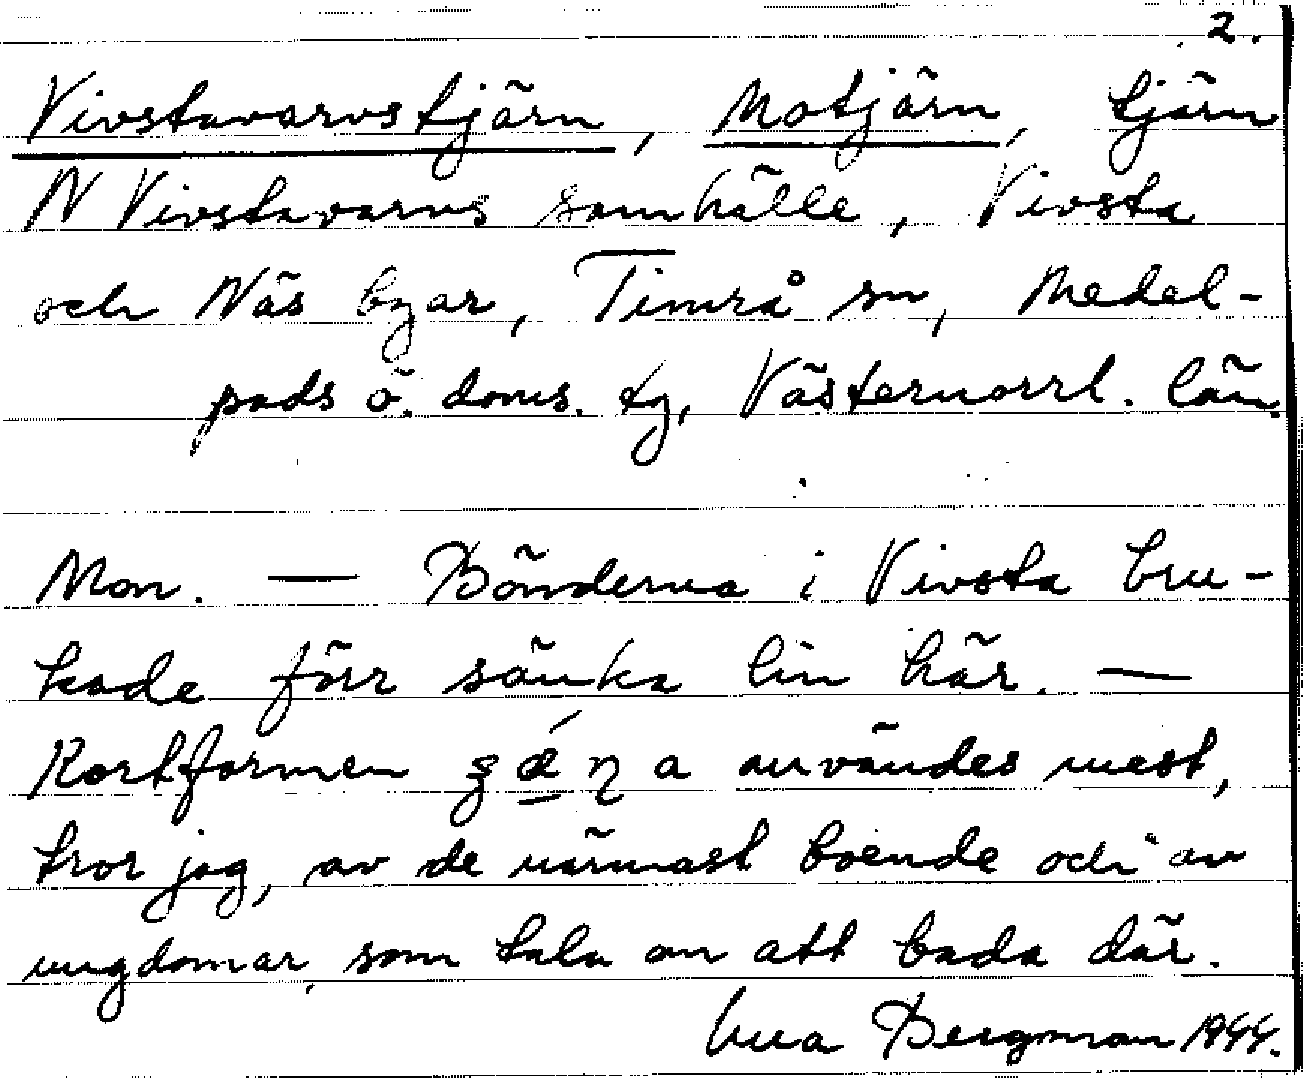 2.
Vivstavarvstjärn, Motjärn, tjärn
N Vivstavarvs samhälle, Vivsta
och Näs byar, Timrå sn, Medel-
pads ö. doms. tg, Västernorrl. län.
Mon. — Bönderna i Vivsta bru-
kade förr sänka lin här. —
Kortformen användes mest,
tror jag, av de närmast boende och av
ungdomar, som tala om att bada där.
Bergman 1944.